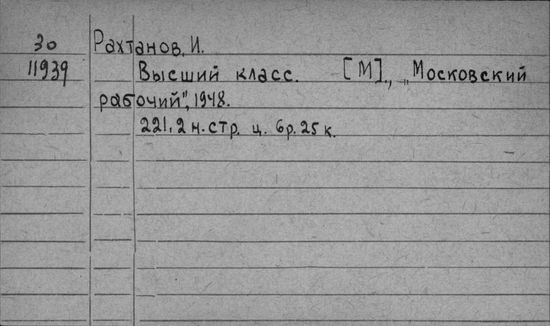 30 Рахтанов, И.
11939 Высший класс. [М]., „Московский
рабочий", 1948.
221, 2 н. стр. ц. 6 р. 25 к.